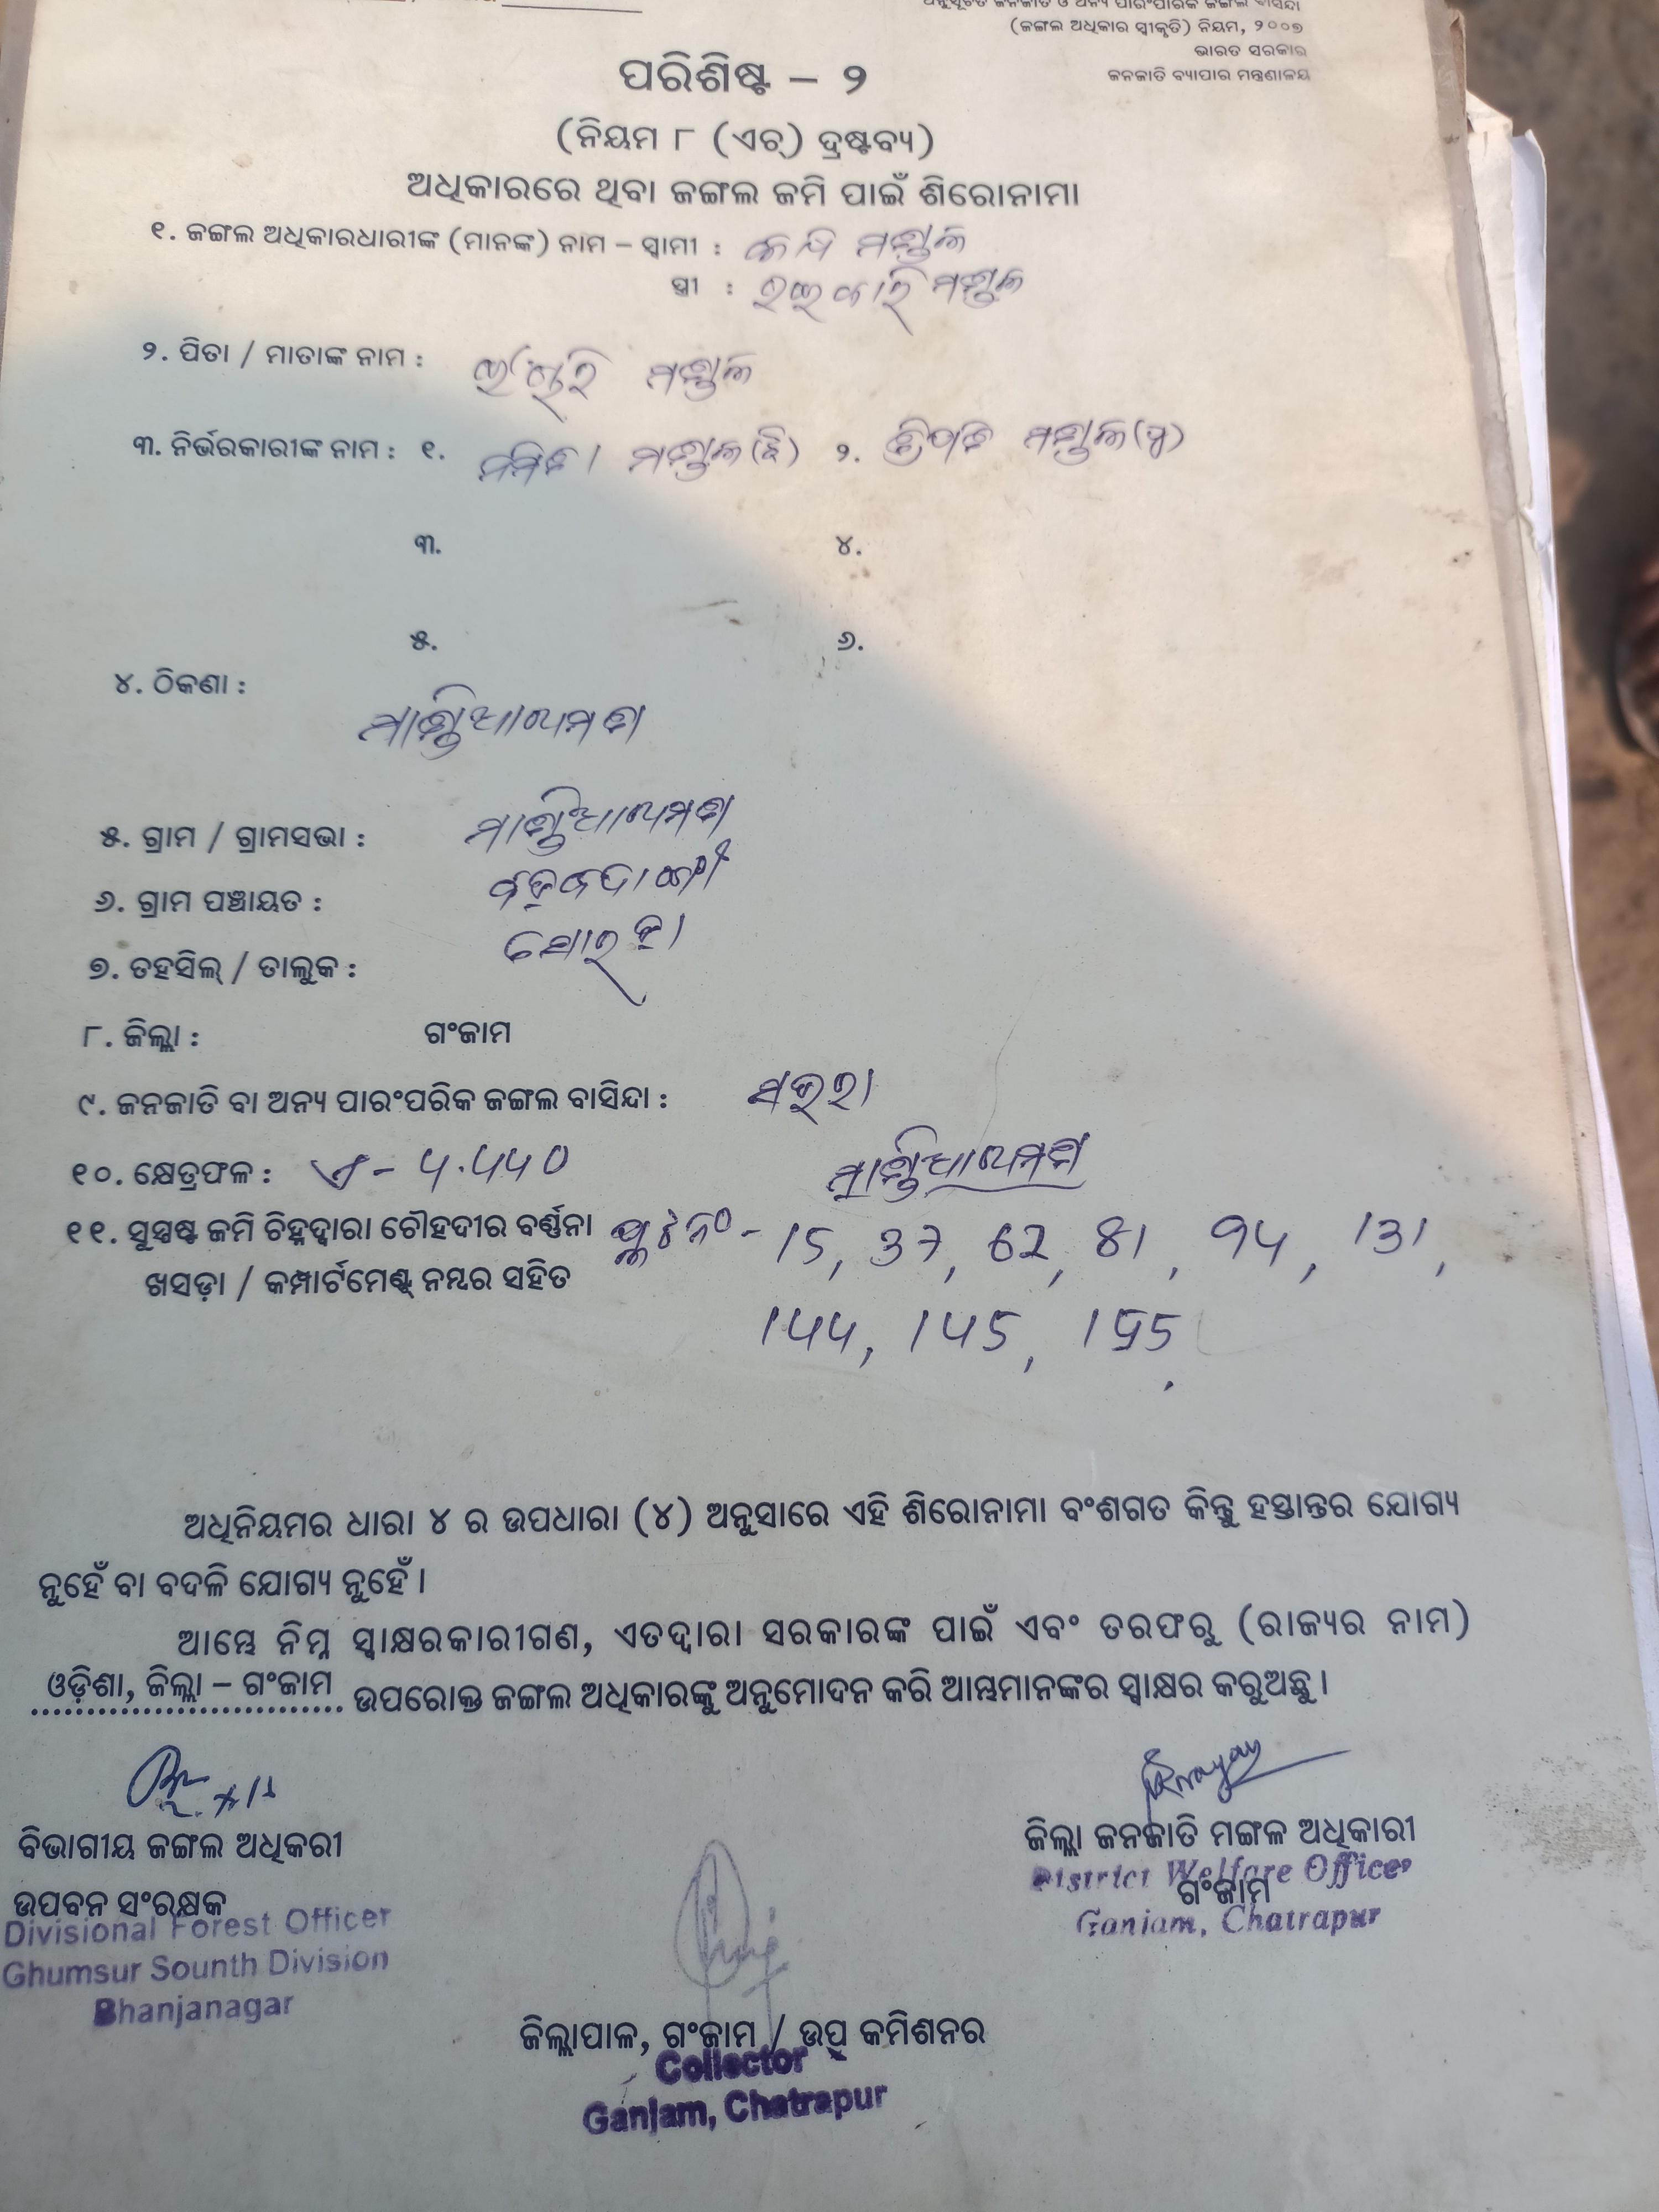 ଅନୁସୂଚିତ ଜନଜାତି ଓ ଅନ୍ୟ ପାରଂପାରିକ ଜଙ୍ଗଲ ବାସିନ୍ଦା
(ଜଙ୍ଗଲ ଅଧିକାର ସ୍ୱୀକୃତି) ନିୟମ, ୨୦୦୭
ଭାରତ ସରକାର
ଜନଜାତି ବ୍ୟାପାର ମନ୍ତ୍ରଣାଳୟ
ପରିଶିଷ୍ଟ – ୨
(ନିୟମ ୮ (ଏଚ୍) ଦ୍ରଷ୍ଟବ୍ୟ)
ଅଧିକାରରେ ଥିବା ଜଙ୍ଗଲ ଜମି ପାଇଁ ଶିରୋନାମା
୧. ଜଙ୍ଗଲ ଅଧିକାରଧାରୀଙ୍କ (ମାନଙ୍କ) ନାମ – ସ୍ୱାମୀ : ମଣ୍ଡଳ
ସ୍ତ୍ରୀ : ମଣ୍ଡଳ
୨. ପିତା / ମାତାଙ୍କ ନାମ : ମଣ୍ଡଳ
୩. ନିର୍ଭରକାରୀଙ୍କ ନାମ : ୧. ମଣ୍ଡଳ (ଝି) ୨. ମଣ୍ଡଳ (ପୁ)
୩. ୪.
୫. ୬.
୪. ଠିକଣା :
୫. ଗ୍ରାମ / ଗ୍ରାମସଭା :
୬. ଗ୍ରାମ ପଞ୍ଚାୟତ :
୭. ତହସିଲ୍ / ତାଲୁକ : ସୋରଡ଼ା
୮. ଜିଲ୍ଲା : ଗଂଜାମ
୯. ଜନଜାତି ବା ଅନ୍ୟ ପାରଂପରିକ ଜଙ୍ଗଲ ବାସିନ୍ଦା : ସଉରା
୧୦. କ୍ଷେତ୍ରଫଳ : ଏ – ୪.୪୪୦
୧୧. ସୁସ୍ପଷ୍ଟ ଜମି ଚିହ୍ନଦ୍ୱାରା ଚୌହଦୀର ବର୍ଣ୍ଣନା ପ୍ଲଟ ନଂ – 15, 37, 62, 81, 94, 131,
ଖସଡ଼ା / କମ୍ପାର୍ଟମେଣ୍ଟ୍ ନମ୍ବର ସହିତ
144, 145, 155
ଅଧିନିୟମର ଧାରା ୪ ର ଉପଧାରା (୪) ଅନୁସାରେ ଏହି ଶିରୋନାମା ବଂଶଗତ କିନ୍ତୁ ହସ୍ତାନ୍ତର ଯୋଗ୍ୟ
ନୁହେଁ ବା ବଦଳି ଯୋଗ୍ୟ ନୁହେଁ ।
ଆମ୍ଭେ ନିମ୍ନ ସ୍ୱାକ୍ଷରକାରୀଗଣ, ଏତଦ୍ୱାରା ସରକାରଙ୍କ ପାଇଁ ଏବଂ ତରଫରୁ (ରାଜ୍ୟର ନାମ)
ଓଡ଼ିଶା, ଜିଲ୍ଲା – ଗଂଜାମ ଉପରୋକ୍ତ ଜଙ୍ଗଲ ଅଧିକାରଙ୍କୁ ଅନୁମୋଦନ କରି ଆମ୍ଭମାନଙ୍କର ସ୍ୱାକ୍ଷର କରୁଅଛୁ ।
ବିଭାଗୀୟ ଜଙ୍ଗଲ ଅଧିକରୀ
ଉପବନ ସଂରକ୍ଷକ
Divisional Forest Officer
Ghumsur Sounth Division
Bhanjanagar
ଜିଲ୍ଲା ଜନଜାତି ମଙ୍ଗଳ ଅଧିକାରୀ
District Welfare Officer
ଗଂଜାମ
Ganjam, Chatrapur
ଜିଲ୍ଲାପାଳ, ଗଂଜାମ / ଉପ୍ କମିଶନର
Collector
Ganjam, Chatrapur